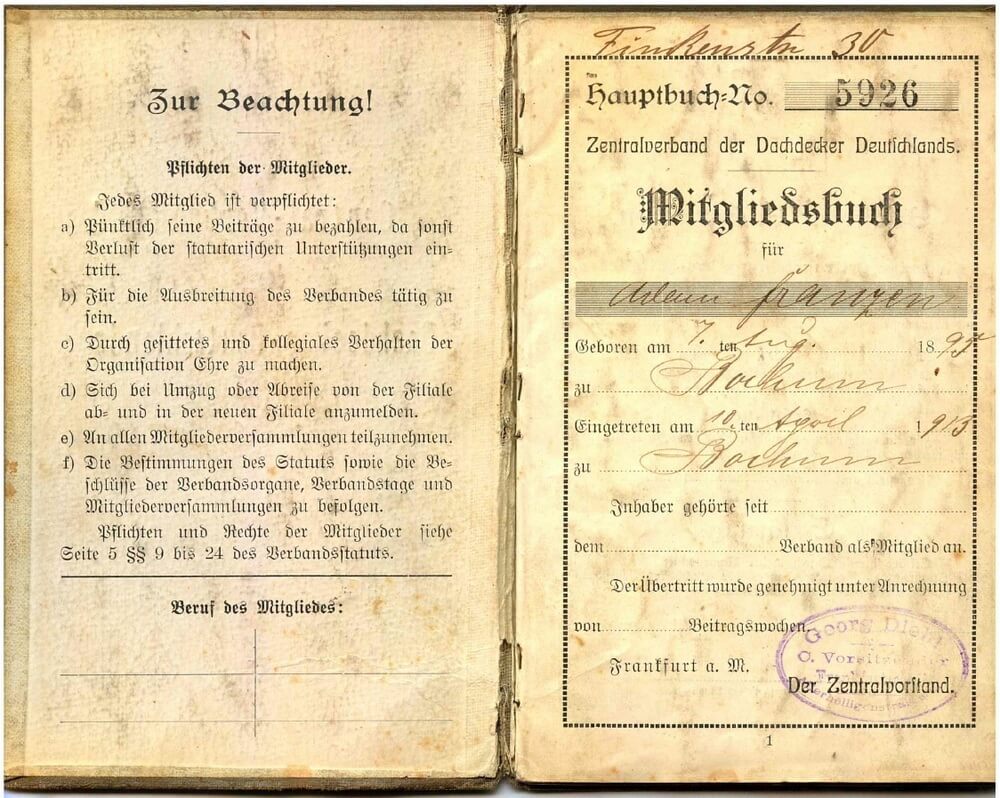 Zur Beachtung!
Pflichten der Mitglieder.
Jedes Mitglied ist verpflichtet:
a) Pünktlich seine Beiträge zu bezahlen, da sonst
Verlust der statutarischen Unterstützungen ein-
tritt.
b) Für die Ausbreitung des Verbandes tätig zu
sein.
c) Durch gesittetes und kollegiales Verhalten der
Organisation Ehre zu machen.
d) Sich bei Umzug oder Abreise von der Filiale
ab- und in der neuen Filiale anzumelden.
e) An allen Mitgliederversammlungen teilzunehmen.
f) Die Bestimmungen des Statuts sowie die Be-
schlüsse der Verbandsorgane, Verbandstage und
Mitgliederversammlungen zu befolgen.
Pflichten und Rechte der Mitglieder siehe
Seite 5 §§ 9 bis 24 des Verbandsstatuts.
Beruf des Mitgliedes:
Finkenstr 30
Hauptbuch-No. 5926
Zentralverband der Dachdecker Deutschlands.
Mitgliedsbuch
für
Adam Franzen
Geboren am 7. ten Aug. 1895
zu Bochum
Eingetreten am 10. ten April 1913
zu Bochum
Inhaber gehörte seit
dem Verband als Mitglied an.
Der Übertritt wurde genehmigt unter Anrechnung
von Beitragswochen.
Georg Diehl
Frankfurt a. M.
Der Zentralvorstand.
1